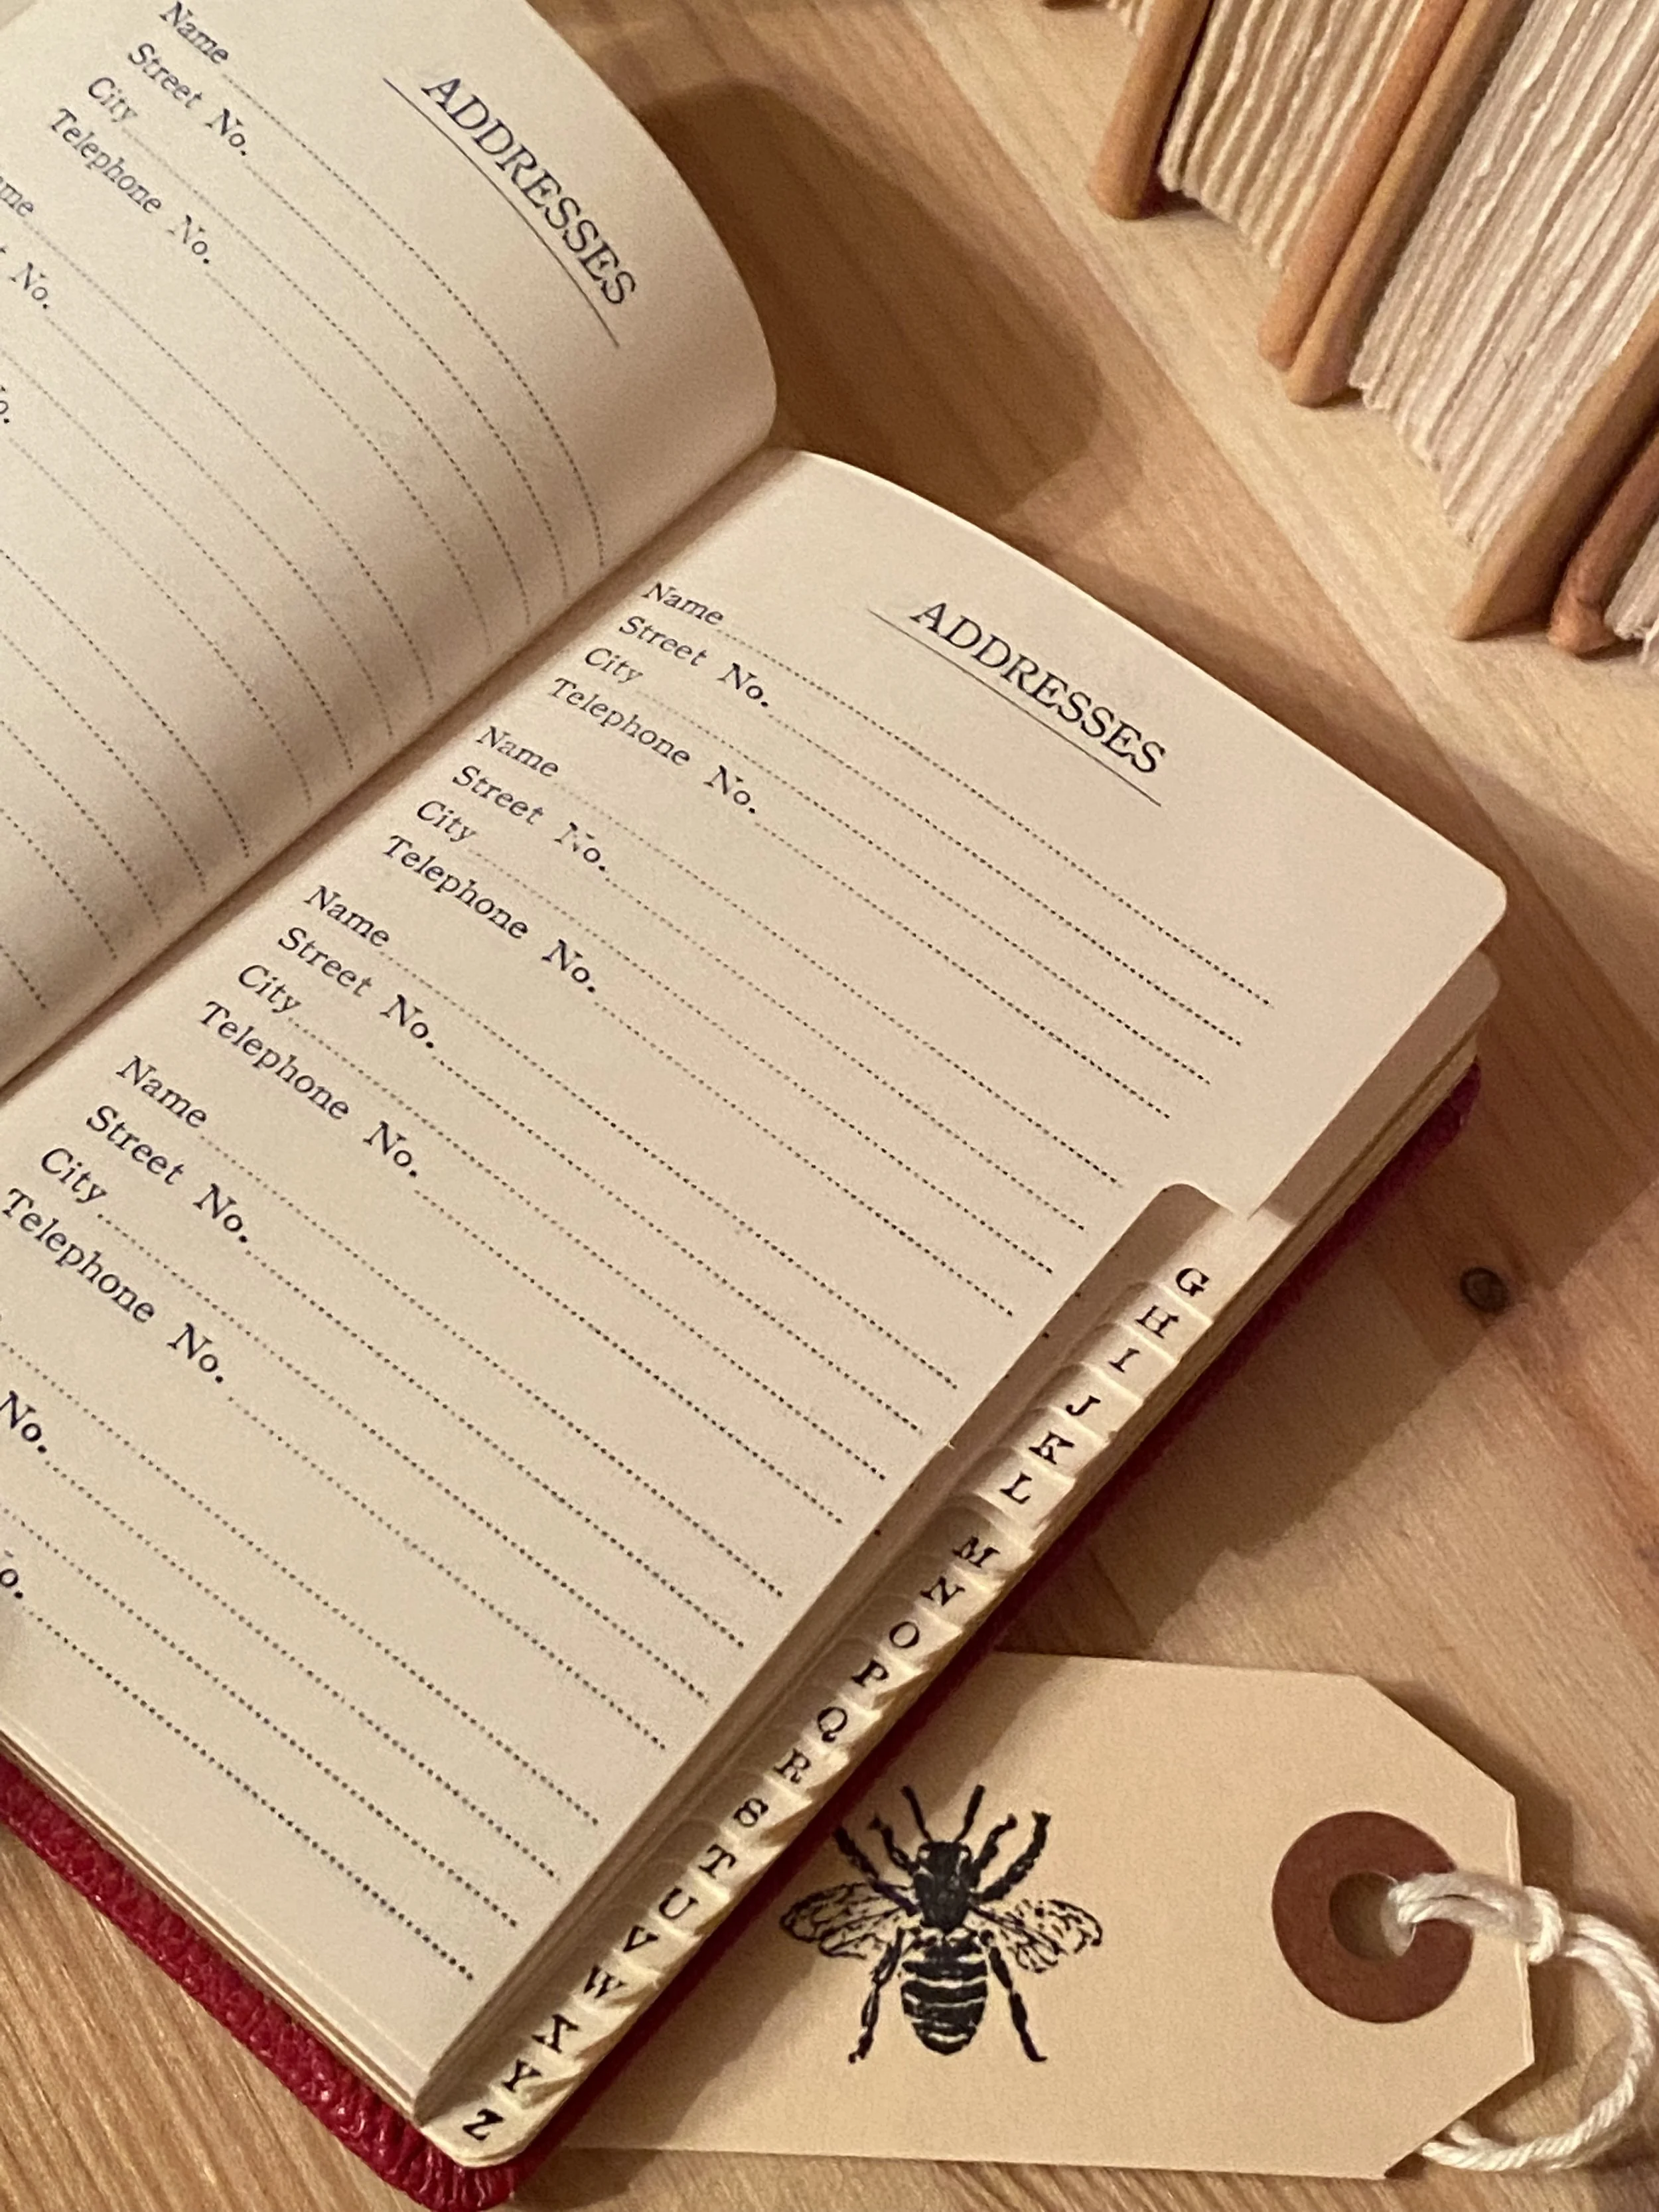 ADDRESSES
Name
Street No.
City
Telephone No.
No.
ADDRESSES
Name
Street No.
City
Telephone No.
Name
Street No.
City
Telephone No.
Name
Street No.
City
Telephone No.
Name
Street No.
City
Telephone No.
No.
G
H
I
J
K
L
M
N
O
P
Q
R
S
T
U
V
W
X
Y
Z